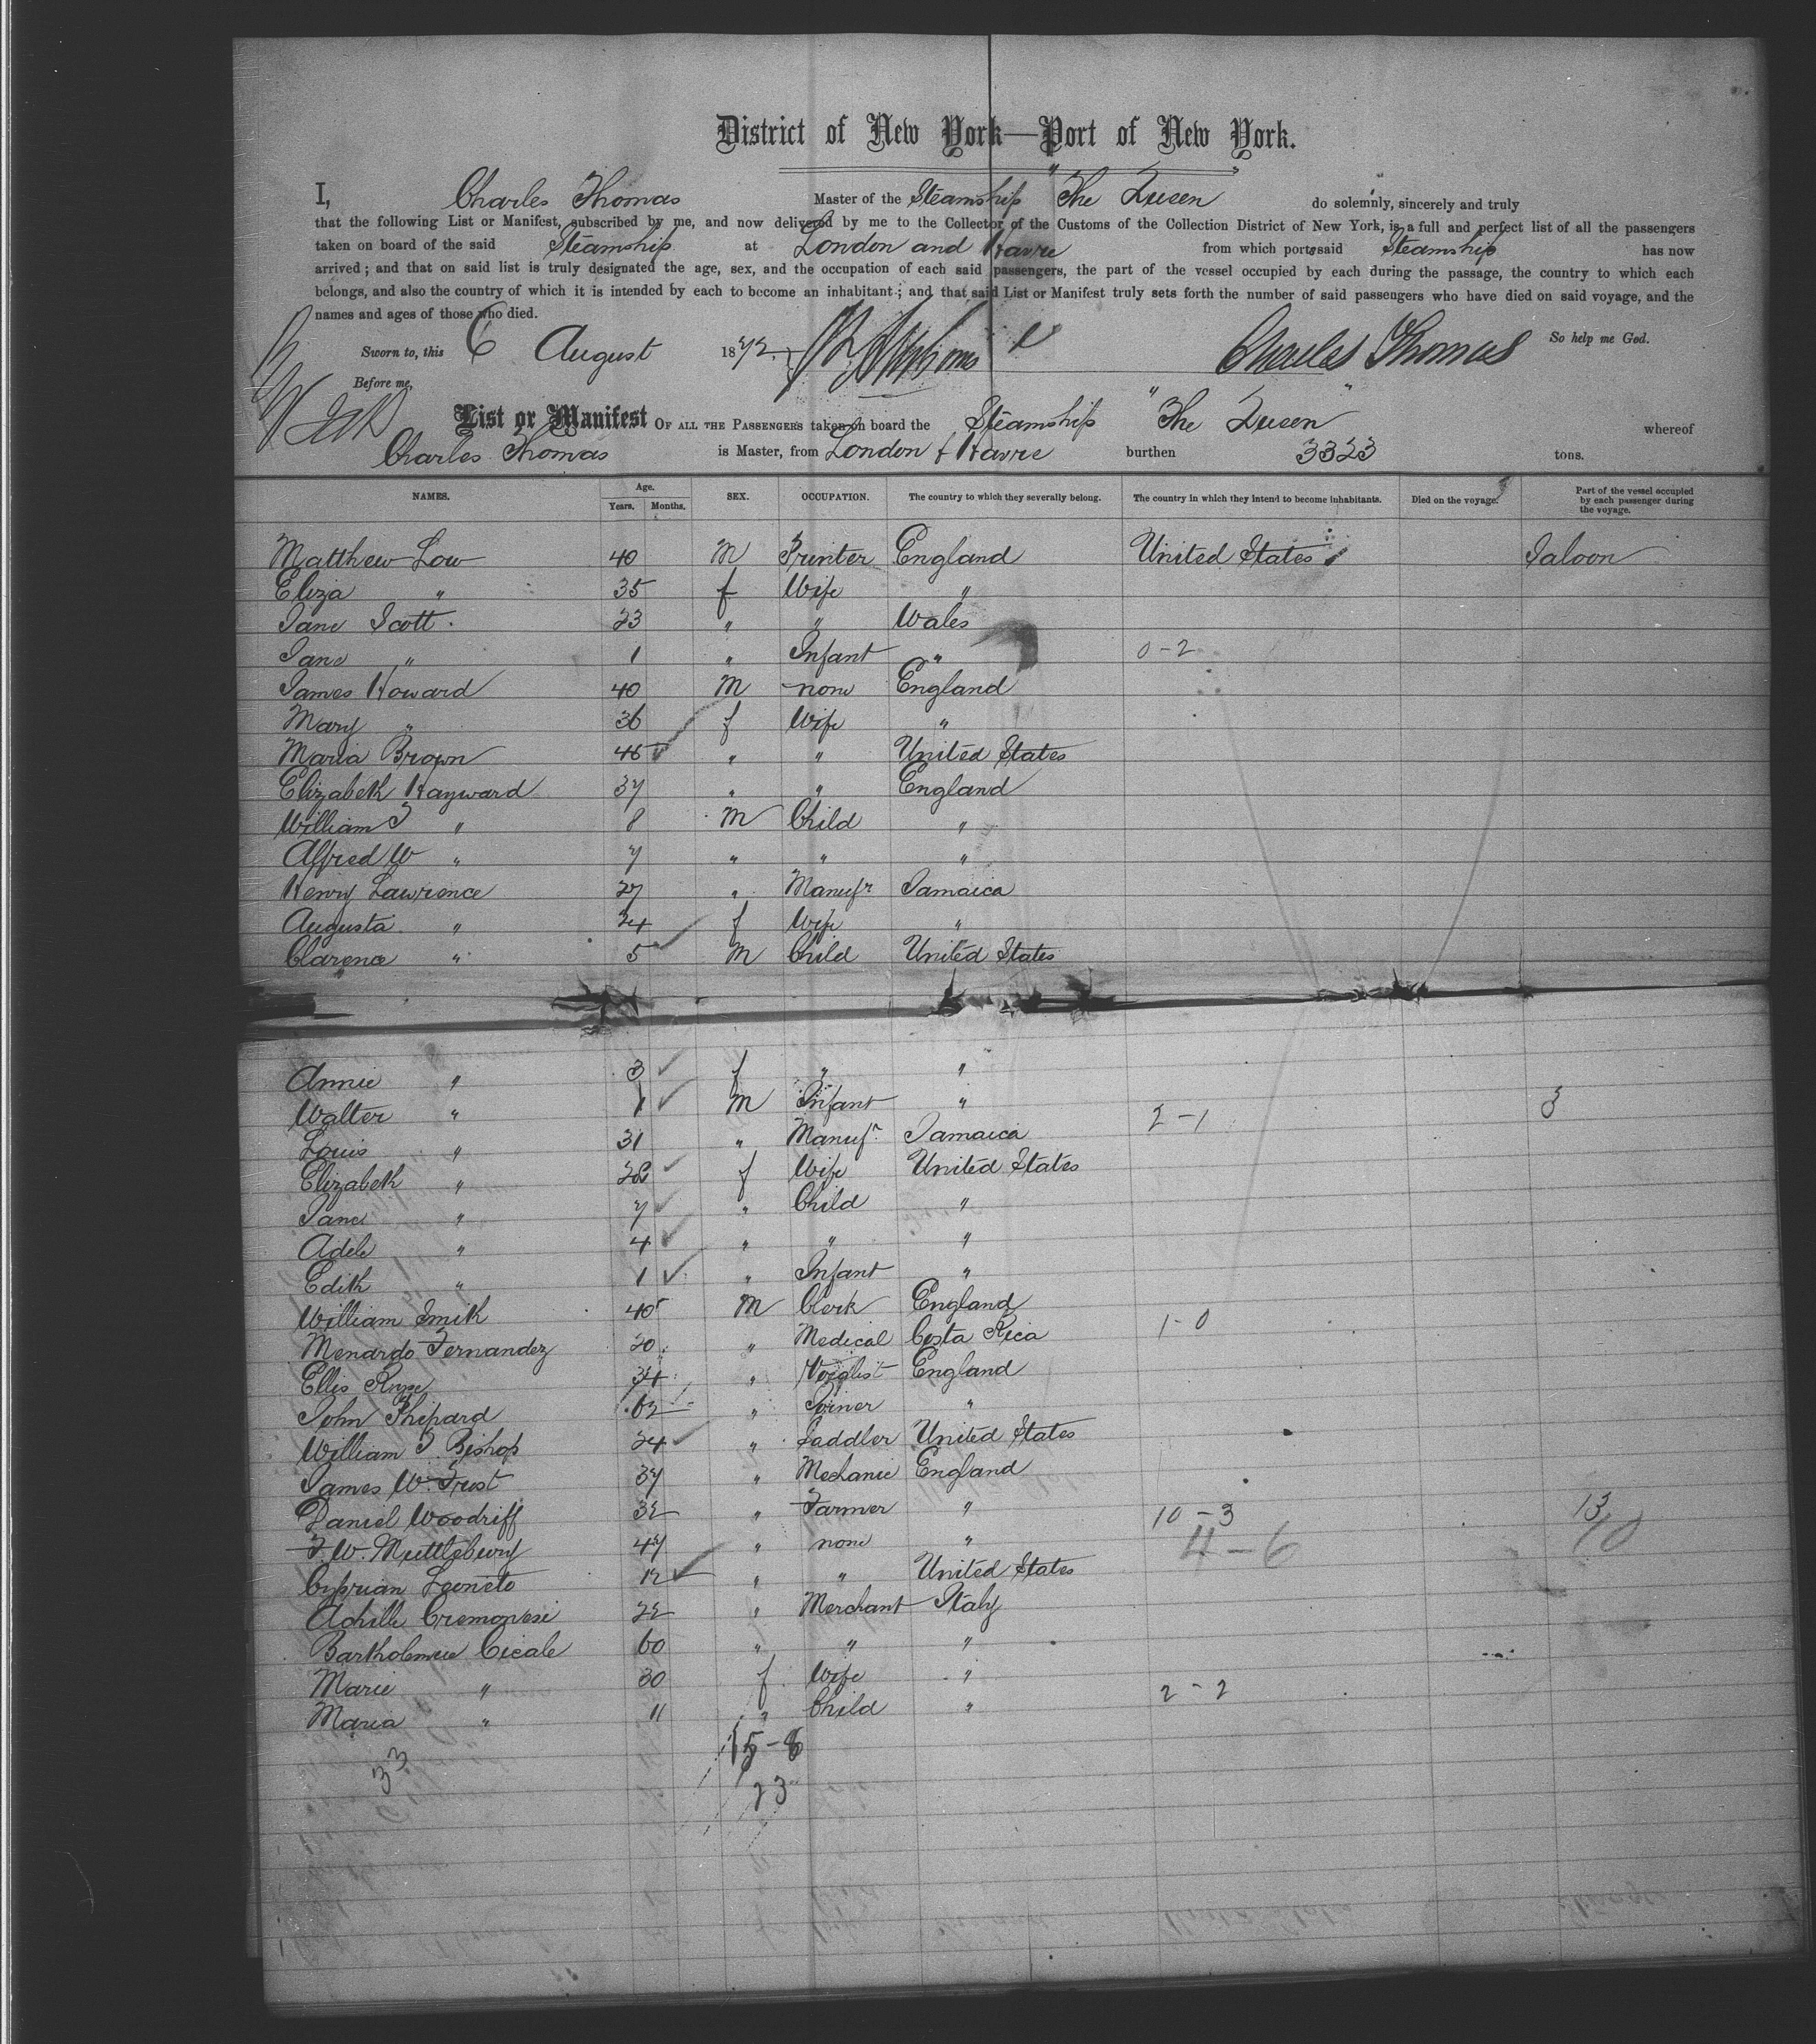 District of New York—Port of New York.
I, Charles Thomas Master of the Steamship "The Queen" do solemnly, sincerely and truly
that the following List or Manifest, subscribed by me, and now delivered by me to the Collector of the Customs of the Collection District of New York, is a full and perfect list of all the passengers
taken on board of the said Steamship at London and Havre from which ports said Steamship has now
arrived; and that on said list is truly designated the age, sex, and the occupation of each said passengers, the part of the vessel occupied by each during the passage, the country to which each
belongs, and also the country of which it is intended by each to become an inhabitant; and that said List or Manifest truly sets forth the number of said passengers who have died on said voyage, and the
names and ages of those who died.
Sworn to, this 6 August 1872. Charles Thomas So help me God.
Before me,
List or Manifest OF ALL THE PASSENGERS taken on board the Steamship "The Queen" whereof
Charles Thomas is Master, from London & Havre burthen 3323 tons.
NAMES. Age. Years. Months. SEX. OCCUPATION. The country to which they severally belong. The country in which they intend to become inhabitants. Died on the voyage. Part of the vessel occupied by each passenger during the voyage.
Matthew Low 40 M Printer England United States Saloon
Eliza " 35 f Wife "
Jane Scott. 23 " " Wales
Jane " 1 " Infant " 0-2
James Howard 40 M none England
Mary " 36 f Wife "
Maria Brown 45 " " United States
Elizabeth Hayward 37 " " England
William J " 8 M Child "
Alfred W " 7 " " "
Henry Lawrence 27 " Manufr Jamaica
Augusta " 24 f Wife "
Clarence " 5 M Child United States
Annie " 3 f " "
Walter " 1 M Infant " 2-1 3
Louis " 31 " Manufr. Jamaica
Elizabeth " 28 f Wife United States
Jane " 7 " Child "
Adele " 4 " " "
Edith " 1 " Infant "
William Smith 40 M Clerk England 1-0
Menardo Fernandez 20 " Medical Costa Rica
Ellis 34 " England
John Shipard 62 " Joiner "
William J Bishop 24 " Saddler United States
James W. Trust 37 " Mechanic England
Daniel Woodriff 32 " Farmer " 10-3 13
F. W. Muttlebury 47 " none " 4-6 10
Cyprian Leoneto 12 " " United States
Achille Cremonesi 22 " Merchant Italy
Bartholemew Cicale 60 " " "
Marie " 30 f Wife " 2-2
Maria " 11 " Child "
33 15-8
23